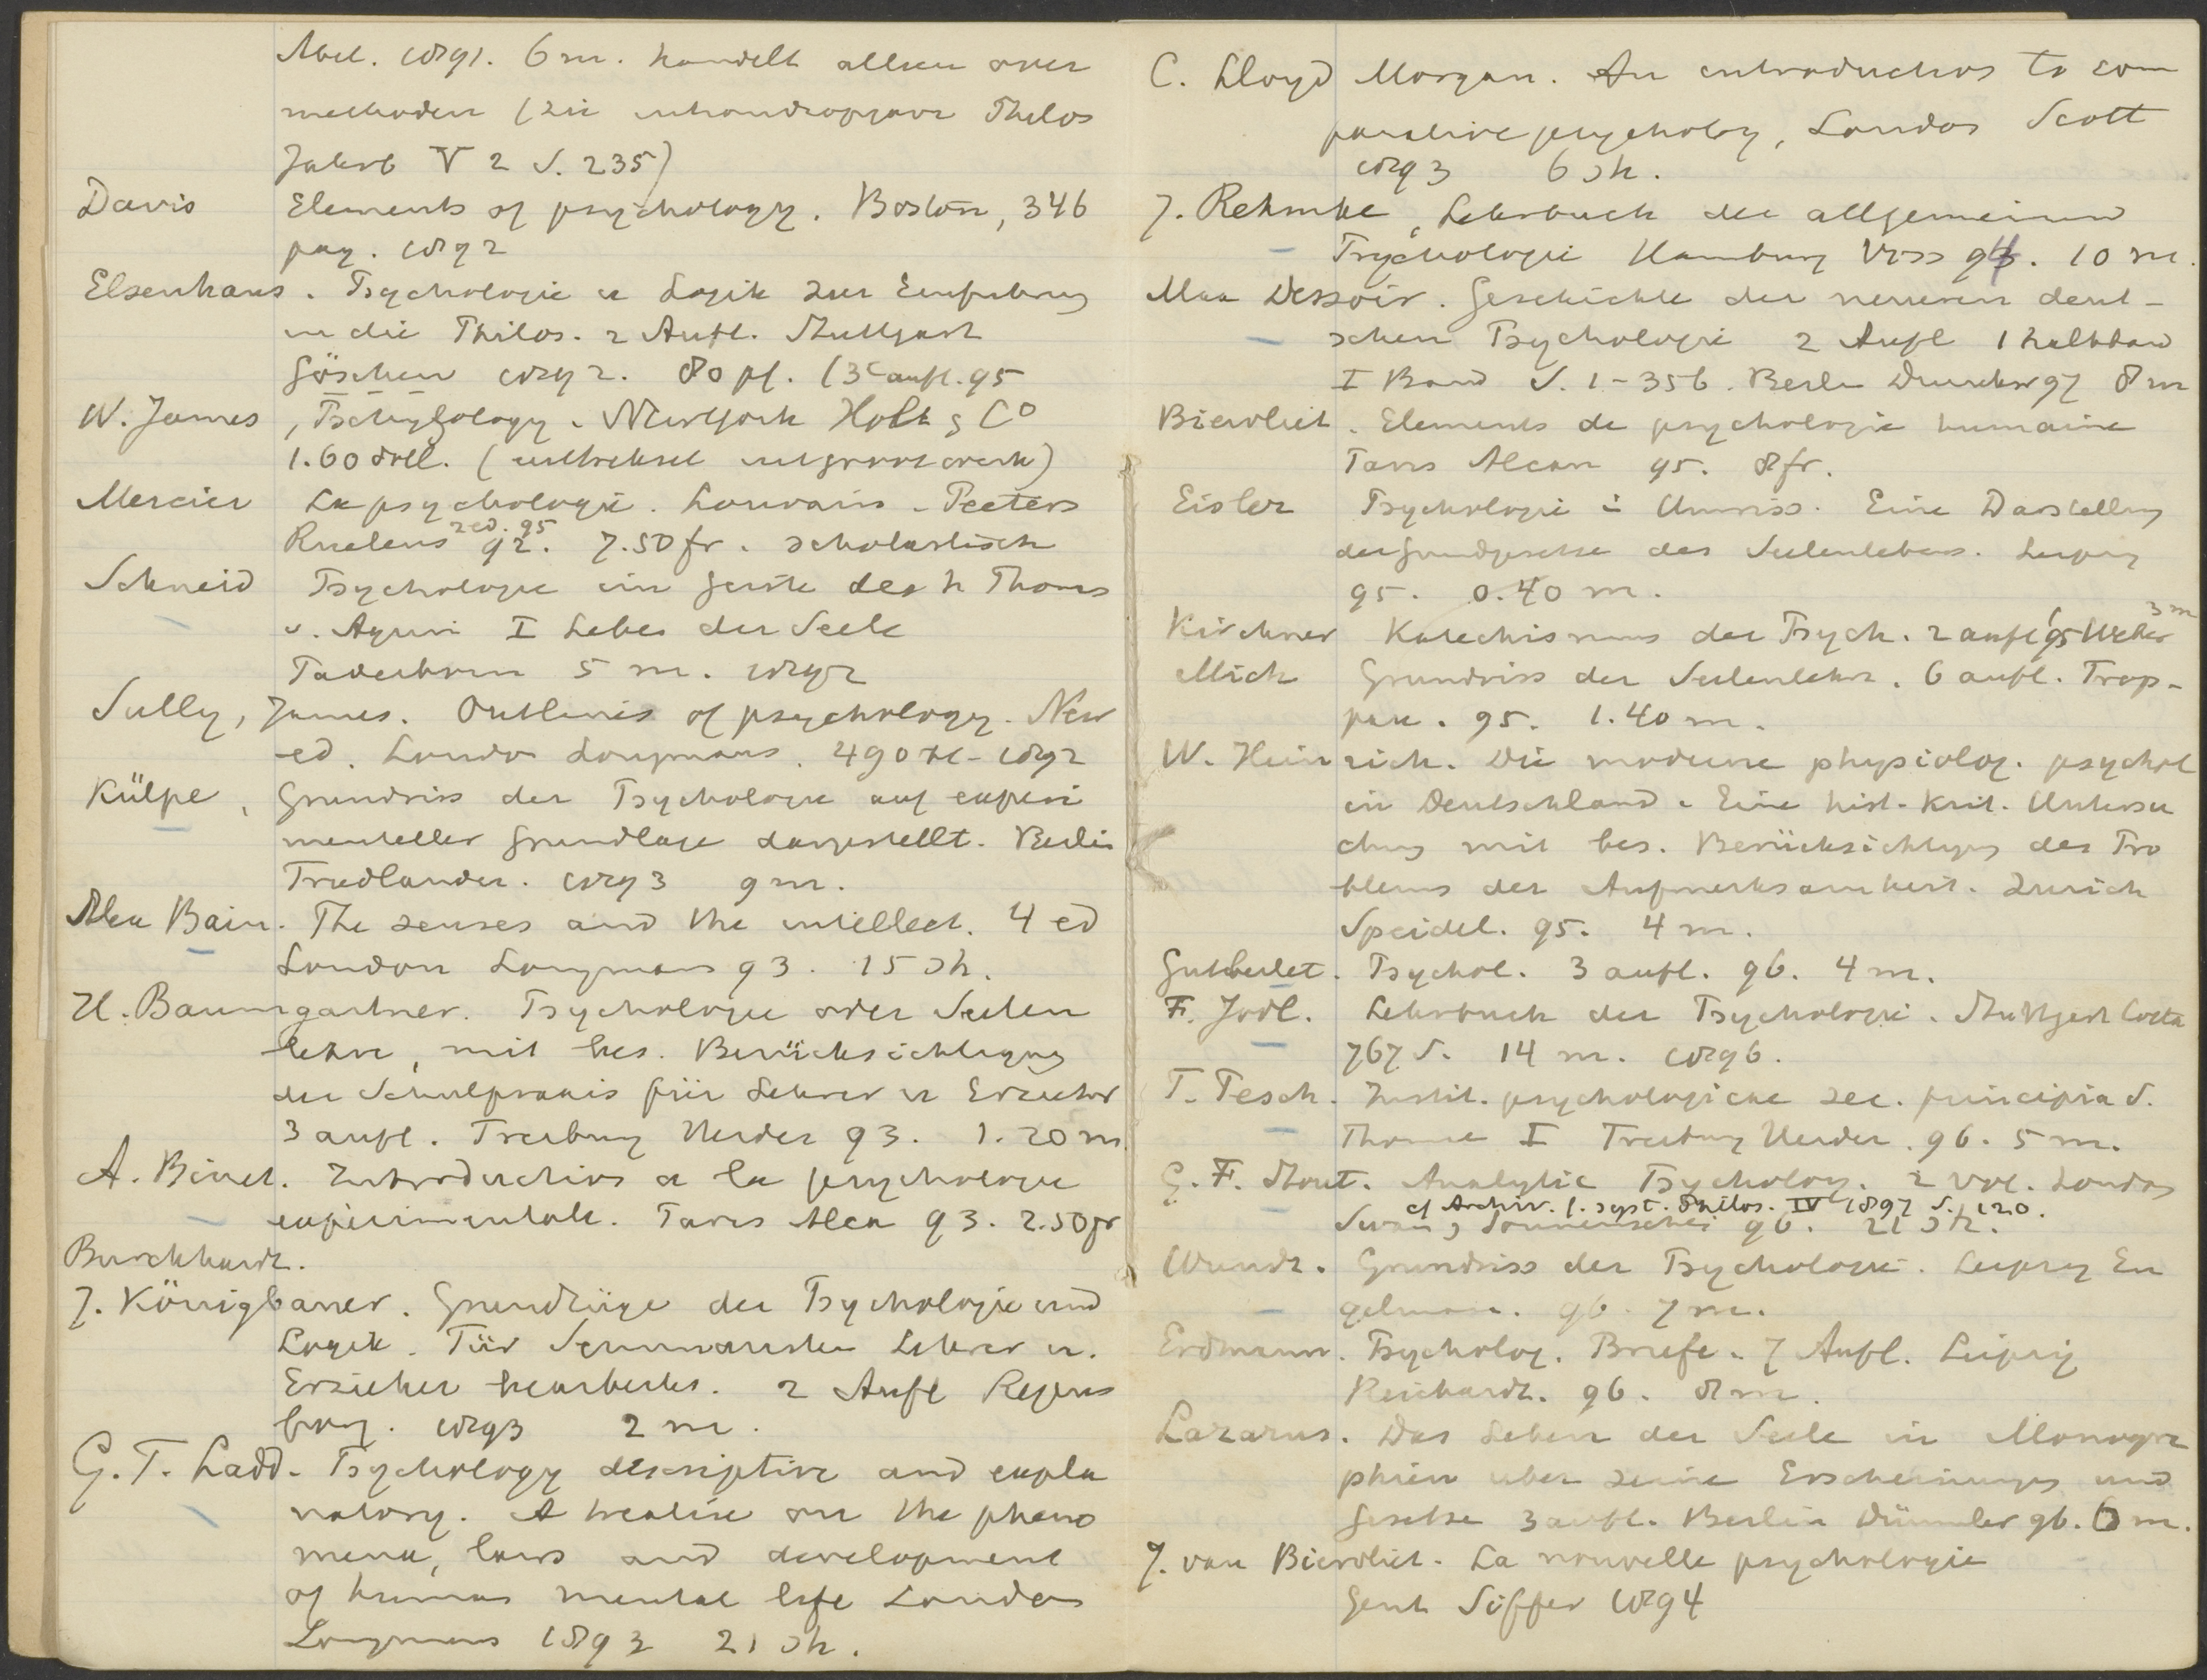 Abel. 1891. 6 m. handelt alleen over
methoden (zie inhoudsopgave Philos
Jahrb V 2 S. 235)
Davis Elements of psychology. Boston, 346
pag. 1892
Elsenhans. Psychologie u Logik zur Einfuhrung
in die Philos. 2 Aufl. Stuttgart
Göschen 1892. 80 pf. (3e aufl. 95
W. James, Psychology. New York Holt & Co
1.60 doll. (uittreksel uit groote werk)
Mercier La psychologie. Louvain - Peeters
2 ed. 95
Ruelens 92. 7.50 fr. scholastisch
Schneid Psychologie im Geiste des h Thomas
v. Aquin I Leben der Seele
Paderborn 5 m. 1892
Sully, James. Outlines of psychology. New
ed. London Longmans. 490 1892
Külpe, Grundriss der Psychologie auf experi
menteller Grundlage dargestellt. Berlin
Friedlander. 1893 9 m.
Alex Bain. The senses and the intellect. 4 ed
London Longmans 93. 15 sh.
H. Baumgartner. Psychologie oder Seelen
lehre, mit bes. Berücksichtigung
der Schulpraxis für Lehrer u Erzieher
3 aufl. Freiburg Herder 93. 1.20 m
A. Binet. Introduction a la psychologie
experimentale. Paris Alcan 93. 2.50 fr
Burckhardt.
J. Königbauer. Grundzüge der Psychologie und
Logik. Für Seminaristen Lehrer u.
Erzieher bearbeitet. 2 Aufl Regens
burg. 1893 2 m.
G. T. Ladd. Psychology descriptive and expla
natory. A treatise on the pheno
mena, laws and development
of human mental life London
Longmans 1893 21 sh.
C. Lloyd Morgan. An introduction to com
parative psycholoy, London Scott
1893 6 sh.
J. Rehmke, Lehrbuch der allgemeinen
Psychologie Hamburg Voss 94. 10 m.
Max Dessoir. Geschichte der neueren deut-
schen Psychologie 2 Aufl 1 halbband
I Band S. 1-356. Berlin Duncker 97 8 m
Biervliet. Elements de psychologie humaine
Paris Alcan 95. 8 fr.
Eisler Psychologie i Umriss. Eine Darstellung
der Grundgesetze des Seelenlebens. Leipzig
95. 0.40 m.
Kirchner Katechismus der Psych. 2 aufl 95 Weber 3 m
Mich Grundriss der Seelenlehre. 6 aufl. Trop-
pau. 95. 1.40 m.
W. Heinrich. Die moderne physiolog. psychol
in Deutschland. Eine hist-krit. Untersu
chung mit bes. Berücksichtigung des Pro
blems der Aufmerksamkeit. Zurich
Speidel. 95. 4 m.
Gutberlet. Psychol. 3 aufl. 96. 4 m.
F. Jodl. Lehrbuch der Psychologie. Stuttgart Cotta
767 S. 14 m. 1896.
T. Pesch. Instit. psychologicae sec. principia S.
Thomae I Freiburg Herder. 96. 5 m.
G. F. Stout. Analytic Psycholog. 2 vol. London
cf Archiv. f. syst. Philos. IV 1897 S. 120.
Swan, Sonnenschei 96. 21 sh.
Wundt. Grundriss der Psychologie. Leipzig En
gelmann. 96. 7 m.
Erdmann. Psycholog. Briefe. 7 Aufl. Leipzig
Reichardt. 96. 8 m.
Lazarus. Das Leben der Seele in Monogra
phien uber seine Erscheinungen und
Gesetze 3 aufl. Berlin Dümmler 96. 6 m.
J. van Biervliet. La nouvelle psychologie
Gent Siffer 1894